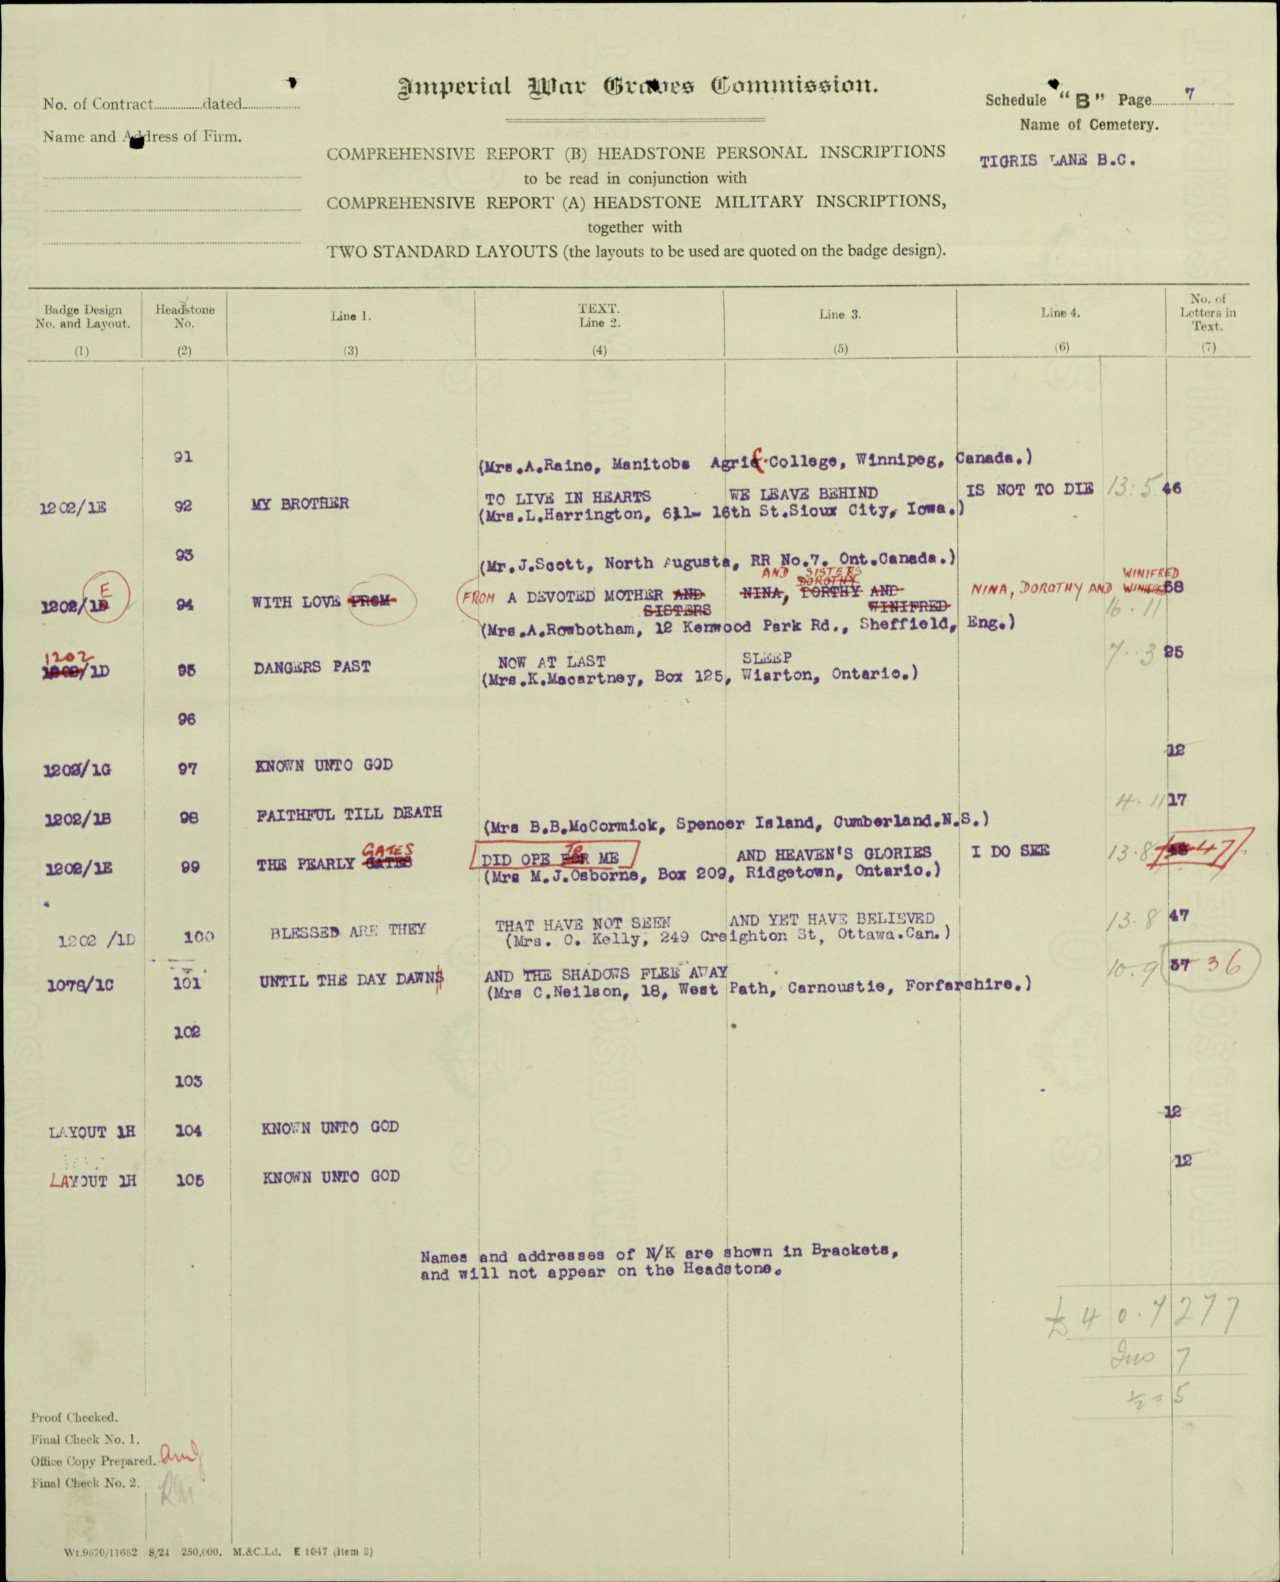 Imperial War Graves Commission.
No. of Contract dated
Name and Address of Firm.
Schedule "B" Page 7
Name of Cemetery.
TIGRIS LANE B.C.
COMPREHENSIVE REPORT (B) HEADSTONE PERSONAL INSCRIPTIONS
to be read in conjunction with
COMPREHENSIVE REPORT (A) HEADSTONE MILITARY INSCRIPTIONS,
together with
TWO STANDARD LAYOUTS (the layouts to be used are quoted on the badge design).
Badge Design No. and Layout. (1) Headstone No. (2) Line 1. (3) TEXT. Line 2. (4) Line 3. (5) Line 4. (6) No. of Letters in Text. (7)
91
(Mrs.A.Raine, Manitoba Agric College, Winnipeg, Canada.)
1202/1E 92 MY BROTHER TO LIVE IN HEARTS WE LEAVE BEHIND IS NOT TO DIE 13.5 46
(Mrs.L.Harrington, 611- 16th St.Sioux City, Iowa.)
93
(Mr.J.Scott, North Augusta, RR No.7. Ont.Canada.)
AND SISTERS WINIFRED
E DOROTHY
1202/1D 94 WITH LOVE FROM FROM A DEVOTED MOTHER AND NINA, DORTHY AND NINA, DOROTHY AND 58
SISTERS WINIFRED 16.11
(Mrs.A.Rowbotham, 12 Kenwood Park Rd., Sheffield, Eng.)
1202
/1D 95 DANGERS PAST NOW AT LAST SLEEP 7.3 25
(Mrs.K.Macartney, Box 125, Wiarton, Ontario.)
96
12
1202/1G 97 KNOWN UNTO GOD
1202/1B 98 FAITHFUL TILL DEATH 4.11 17
(Mrs B.B.McCormick, Spencer Island, Cumberland.N.S.)
GATES TO
1202/1E 99 THE PEARLY GATES DID OPE FOR ME AND HEAVEN'S GLORIES I DO SEE 13.8 47
(Mrs M.J.Osborne, Box 209, Ridgetown, Ontario.)
1202 /1D 100 BLESSED ARE THEY THAT HAVE NOT SEEN AND YET HAVE BELIEVED 13.8 47
(Mrs. O. Kelly, 249 Creighton St, Ottawa.Can.)
1078/1C 101 UNTIL THE DAY DAWNS AND THE SHADOWS FLEE AWAY 10.9 37 36
(Mrs C.Neilson, 18, West Path, Carnoustie, Forfarshire.)
102
103
12
LAYOUT 1H 104 KNOWN UNTO GOD
12
LAYOUT 1H 105 KNOWN UNTO GOD
Names and addresses of N/K are shown in Brackets,
and will not appear on the Headstone.
40.7 277
Ins 7
½= 5
Proof Checked.
Final Check No. 1.
Office Copy Prepared.
Final Check No. 2.
Wt.9670/11682 8/24 250,000. M.&C.Ld. E 1047 (Item 2)